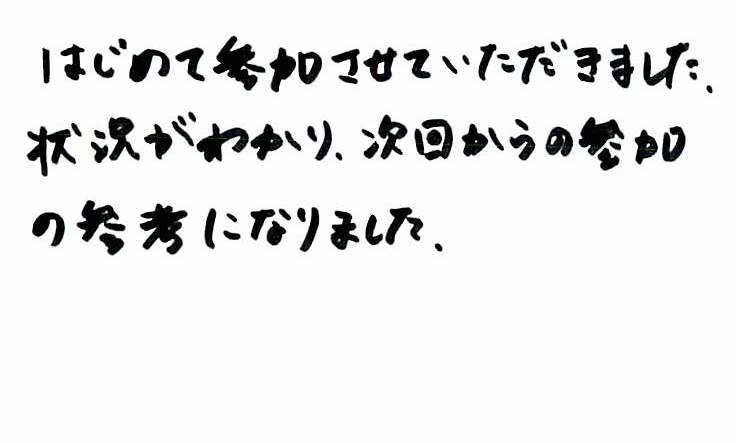 はじめて参加させていただきました.
状況がわかり、次回からの参加
の参考になりました.